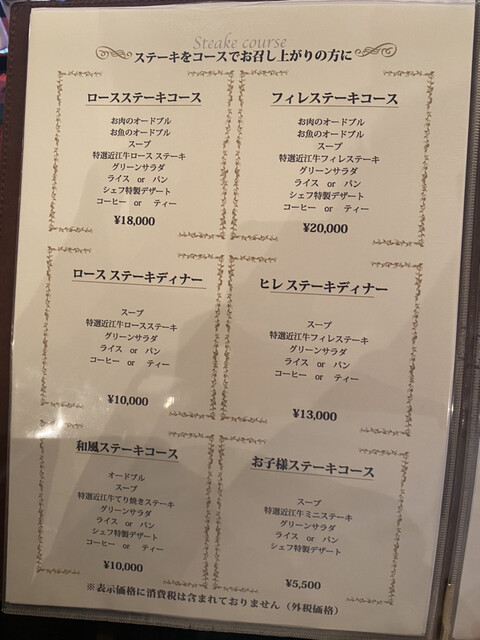 Steake course
ステーキをコースでお召し上がりの方に
ロースステーキコース
お肉のオードブル
お魚のオードブル
スープ
特選近江牛ロース ステーキ
グリーンサラダ
ライス or パン
シェフ特製デザート
コーヒー or ティー
¥18,000
フィレステーキコース
お肉のオードブル
お魚のオードブル
スープ
特選近江牛フィレステーキ
グリーンサラダ
ライス or パン
シェフ特製デザート
コーヒー or ティー
¥20,000
ロース ステーキディナー
スープ
特選近江牛ロースステーキ
グリーンサラダ
ライス or パン
コーヒー or ティー
¥10,000
ヒレ ステーキディナー
スープ
特選近江牛フィレステーキ
グリーンサラダ
ライス or パン
コーヒー or ティー
¥13,000
和風ステーキコース
オードブル
スープ
特選近江牛てり焼きステーキ
グリーンサラダ
ライス or パン
シェフ特製デザート
コーヒー or ティー
¥10,000
お子様ステーキコース
スープ
特選近江牛ミニステーキ
グリーンサラダ
ライス or パン
シェフ特製デザート
¥5,500
※表示価格に消費税は含まれておりません（外税価格）